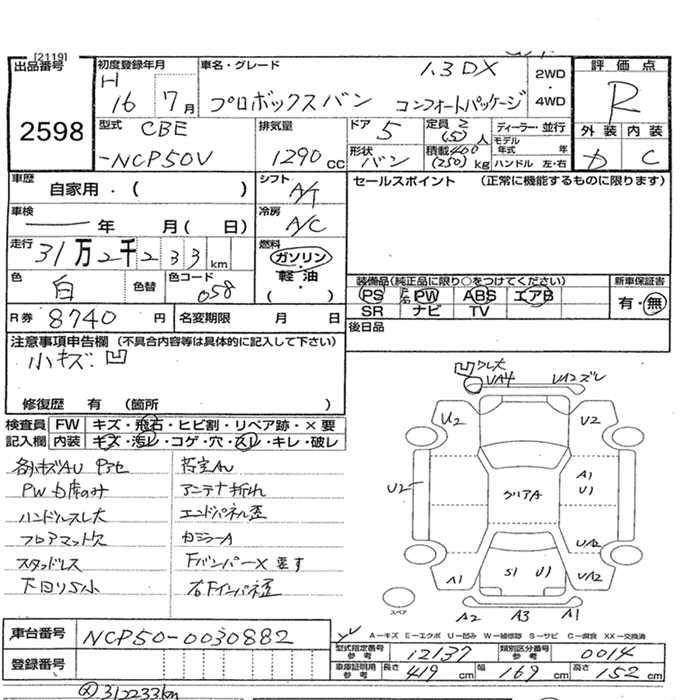 [2119]
出品番号
2598
初度登録年月
H 16 7月
車名・グレード
1.3 DX
プロボックスバン コンフォートパッケージ
2WD
・
4WD
評価点
R
外装 内装
C
型式
CBE
-NCP50V
排気量
1290 cc
ドア
5
形状
バン
定員 2 (5) 人
積載 400 (250) kg
ディーラー・並行
モデル年式 年
ハンドル 左・右
車歴
自家用・( )
シフト
A/T
セールスポイント (正常に機能するものに限ります)
車検
― 年 月( 日)
冷房
A/C
走行
31万2千233 km
燃料
ガソリン・
軽油
( )
色
白
色替
色コード
058
装備品(純正品に限り○をつけてください)
PS PW ABS エアB
SR ナビ TV
新車保証書
有・無
R券 8740 円
名変期限 月 日
後日品
注意事項申告欄 (不具合内容等は具体的に記入して下さい)
小キズ・凹
修復歴 有 (箇所 )
検査員 FW キズ・飛石・ヒビ割・リペア跡・×要
記入欄 内装 キズ・汚レ・コゲ・穴・スレ・キレ・破レ
各小キズAU Pアセ
PW右席のみ
ハンドルスレ大
フロアマット欠
スタッドレス
下回りS小
荷室AU
アンテナ折れ
エンドパネル歪
右ミラーA
FバンパーX要す
右Fインパネ歪
凹 ワレ大
UA4
UA2ズレ
U2
U2
U2
A1
U1
クリアA
UA2
A1
S1
U1
UA2
スペア
A2
A3
A1
A―キズ E―エクボ U―凹み W―補修跡 S―サビ C―腐食 XX―交換済
車台番号 NCP50-0030882
登録番号
型式指定番号
参考
12137
類別区分番号
参考
0014
車庫証明用
参考
長さ 419 cm 幅 169 cm 高さ 152 cm
312233km